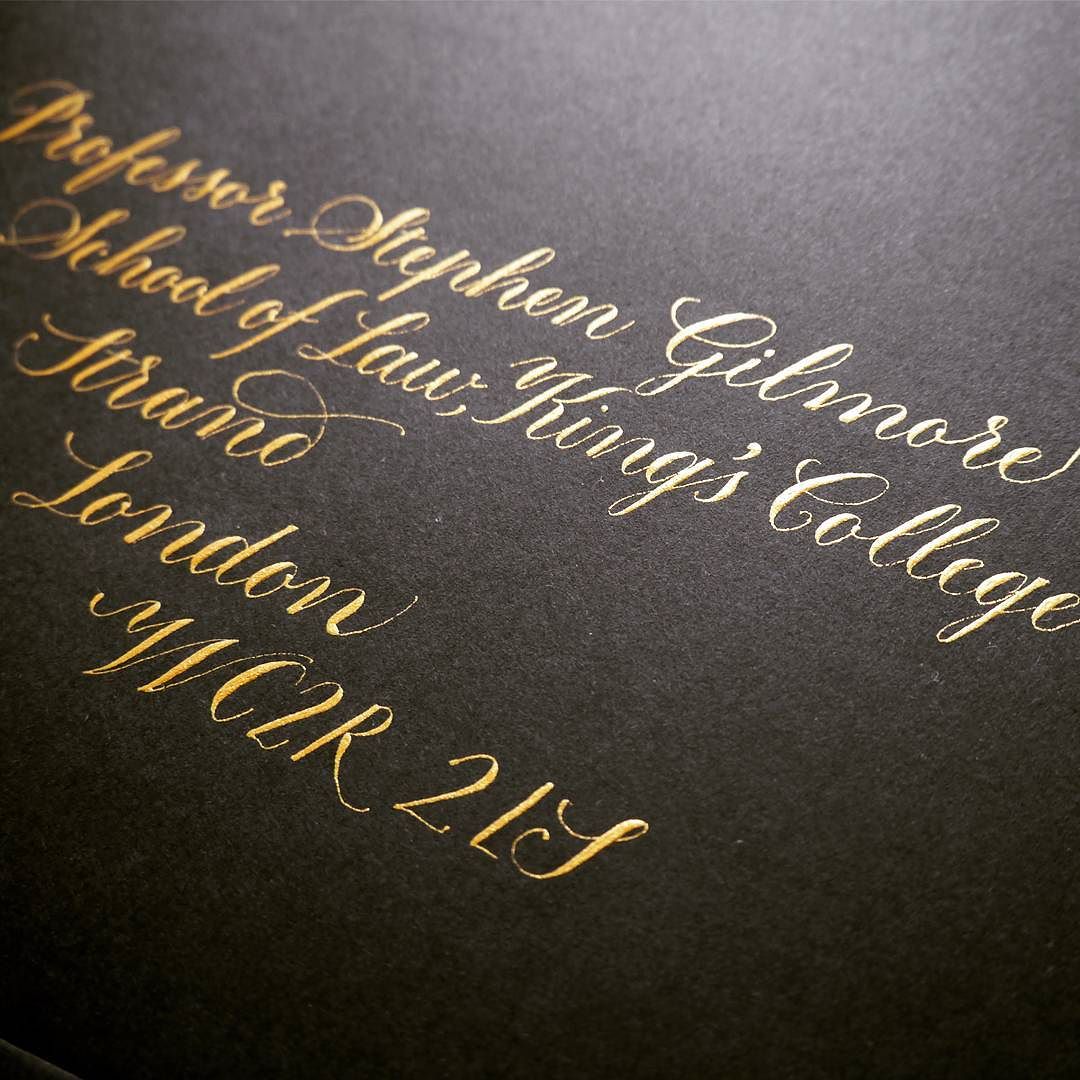 Professor Stephen Gilmore
School of Law, King's College
Strand
London
WC2R 21S